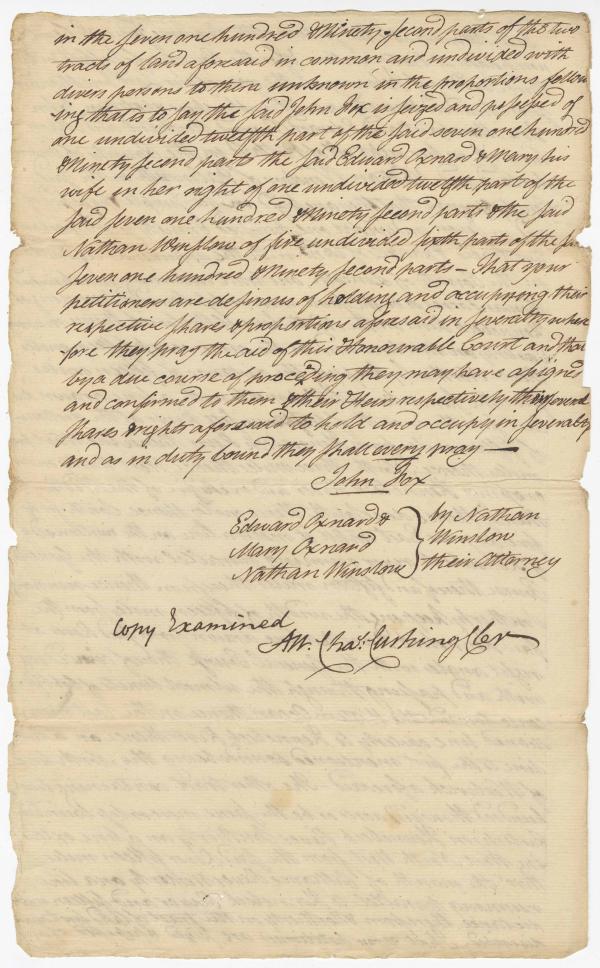 in the seven one hundred & Ninety second parts of the two
tracts of land aforesaid in common and undivided with
divers persons to them unknown in the proportions follow
ing that is to say the said John Fox is seized and possessed of
one undivided twelfth part of the said seven one hundred
& Ninety second parts the said Edward Oxnard & Mary his
wife in her right of one undivided twelfth part of the
said seven one hundred & Ninety second parts & the said
Nathan Winslow of five undivided sixth parts of the
seven one hundred & Ninety second parts — That your
petitioners are desirous of holding and occupying their
respective shares & proportions aforesaid in severalty where
fore they pray the aid of this Honourable Court and that
by a due course of proceeding they may have assigned
and confirmed to them & their Heirs respectively their several
shares & rights aforesaid to hold and occupy in severalty
and as in duty bound they shall every pray —
John Fox
Edward Oxnard & } by Nathan
Mary Oxnard } Winslow
Nathan Winslow } their Attorney
Copy Examined
Att. Chas. Cushing Cler